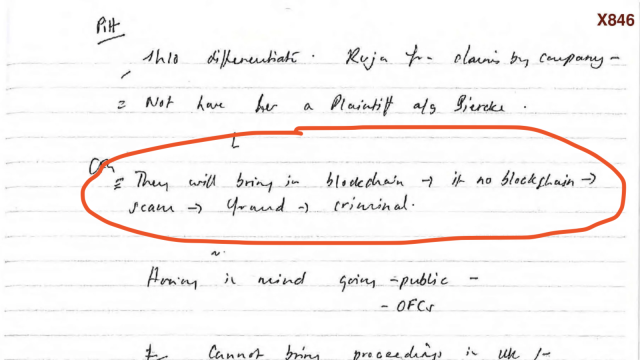 X846
Pitt
differentiate. Ruja claims by company -
= Not have her a Plaintiff a/g Bjercke.
L
= They will bring in blockchain → if no blockchain →
scam → fraud → criminal.
Having in mind going - public -
- OFCs
Cannot bring proceedings in UK